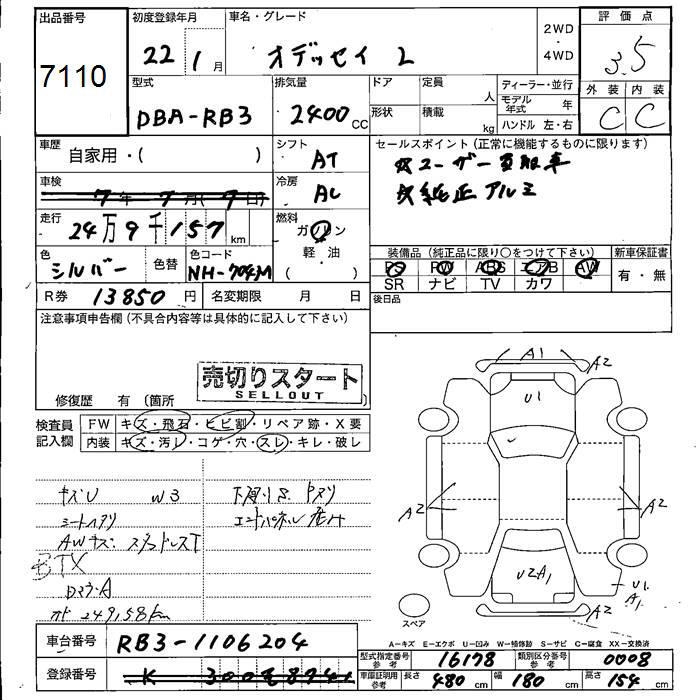 出品番号
7110
初度登録年月
22年 1月
車名・グレード
オデッセイ L
2WD
・
4WD
評価点
3.5
外装 内装
C C
型式
DBA-RB3
排気量
2400 CC
ドア
形状
定員 人
積載 kg
ディーラー・並行
モデル年式 年
ハンドル 左・右
車歴
自家用・( )
シフト
AT
セールスポイント(正常に機能するものに限ります)
ユーザー買取車
純正アルミ
車検
7年 7月(7日)
冷房
AC
走行
24万9千157 km
燃料
ガソリン
軽・油
( )
色
シルバー
色替
色コード
NH-704M
装備品(純正品に限り○をつけて下さい)
PS PW ABS エアB AW
SR ナビ TV カワ
新車保証書
有・無
R券 13850円
名変期限 月 日
後日品
注意事項申告欄(不具合内容等は具体的に記入して下さい)
売切りスタート
SELLOUT
修復歴 有(箇所
検査員
記入欄
FW キズ・飛石・ヒビ割・リペア跡・X要
内装 キズ・汚レ・コゲ・穴・スレ・キレ・破レ
キズU W3
シートヘタリ
AWキズ スタッドレスT
249,158km
A1 A2
U1
A2 A2
U2A1
U1
A1
A2
スペア
A-キズ E-エクボ U-凹み W-補修跡 S-サビ C-腐食 XX-交換済
車台番号 RB3-1106204
登録番号
型式指定番号 参考 16178
類別区分番号 参考 0008
車庫証明用 参考
長さ 480 cm 幅 180 cm 高さ 154 cm